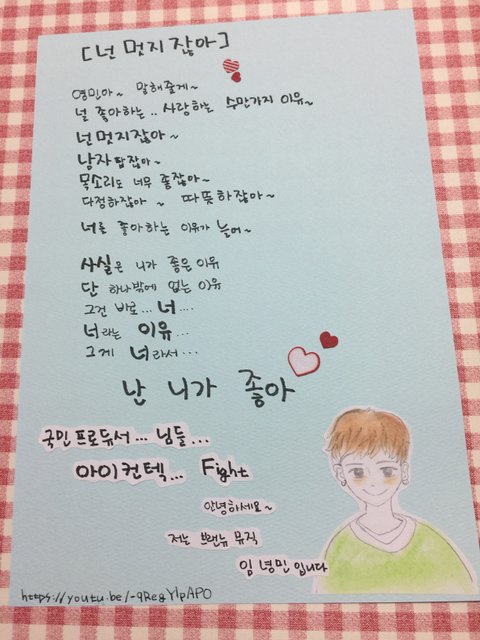 [넌 멋지잖아]
영민아~ 말해줄게~
널 좋아하는.. 사랑하는 수만가지 이유~
넌 멋지잖아~
남자답잖아~
목소리도 너무 좋잖아~
다정하잖아~ 따뜻하잖아~
너를 좋아하는 이유가 늘어~
사실은 니가 좋은 이유
단 하나밖에 없는 이유
그건 바로... 너....
너라는 이유...
그게 너라서...
난 니가 좋아
국민 프로듀서... 님들...
아이컨텍... Fight
안녕하세요~
저는 브랜뉴 뮤직
임영민 입니다